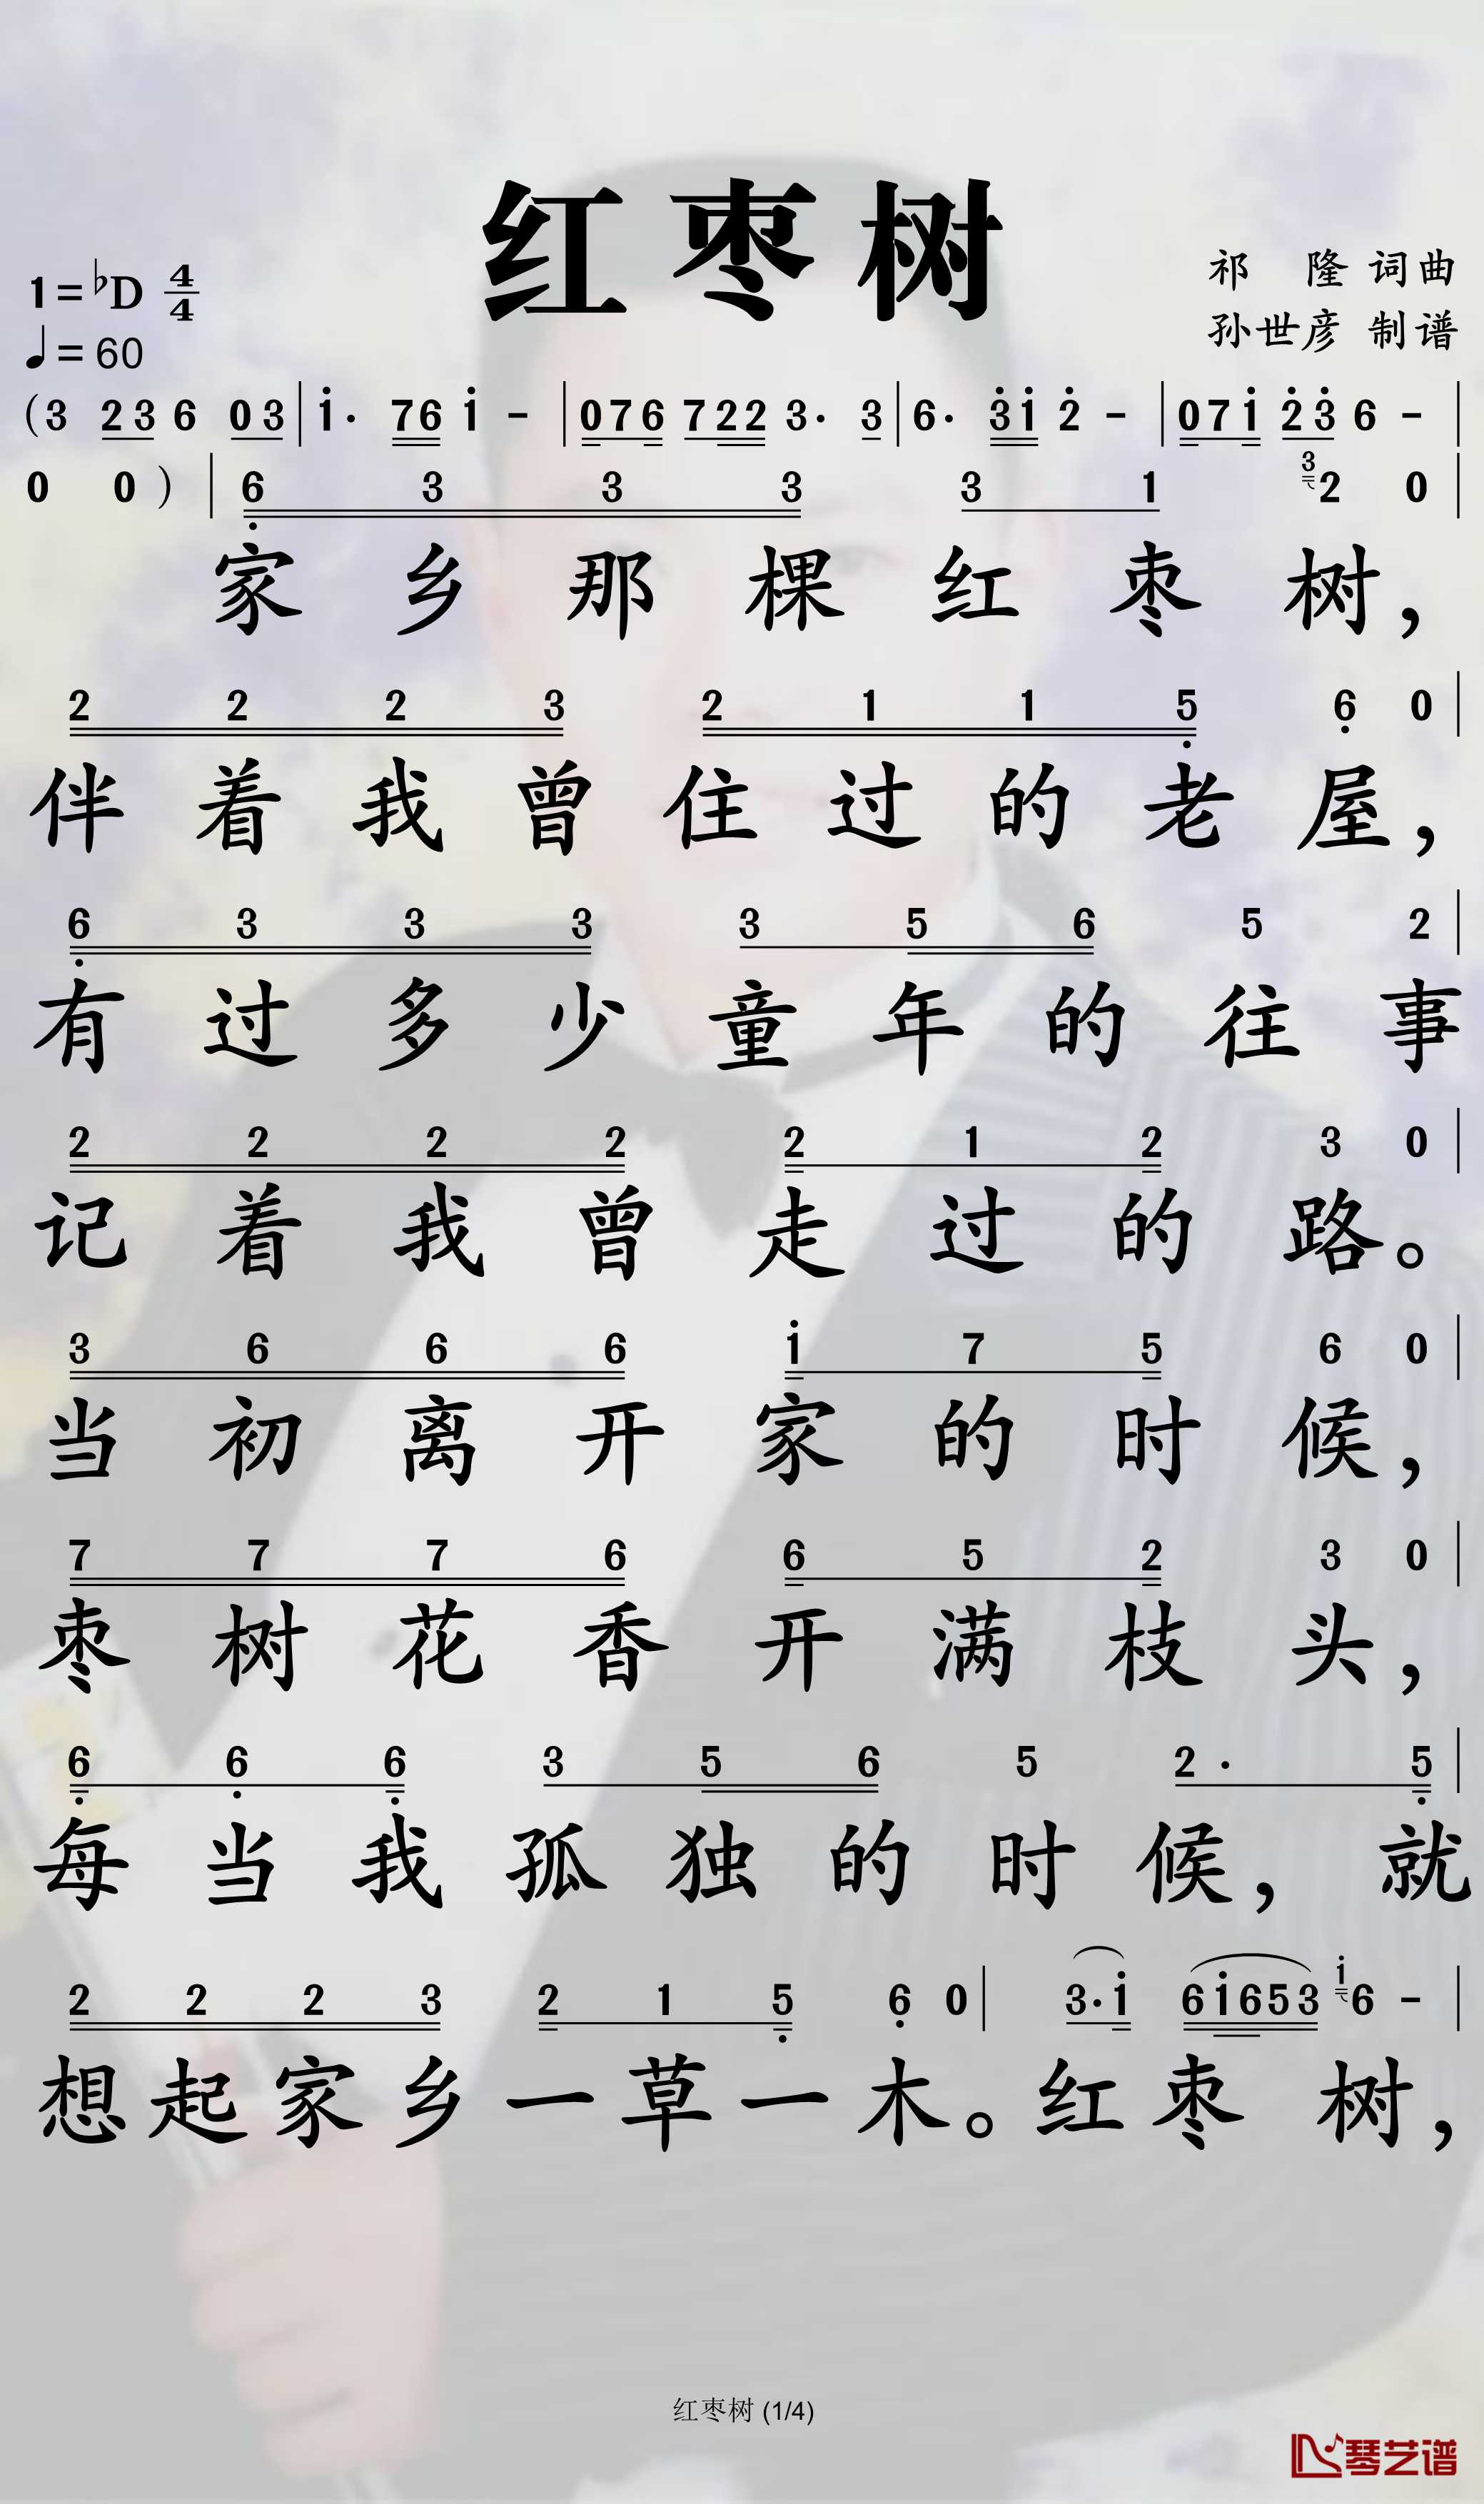 红枣树
祁 隆 词曲
1=♭D 4/4
孙世彦 制谱
♩=60
(3 23 6 03 | i· 76 i - | 076 722 3· 3 | 6· 3i 2 - | 07i 23 6 - |
0 0 ) | 6 3 3 3 3 1 3 2 0 |
家乡那棵红枣树，
2 2 2 3 2 1 1 5 6 0 |
伴着我曾住过的老屋，
6 3 3 3 3 5 6 5 2 |
有过多少童年的往事
2 2 2 2 2 1 2 3 0 |
记着我曾走过的路。
3 6 6 6 i 7 5 6 0 |
当初离开家的时候，
7 7 7 6 6 5 2 3 0 |
枣树花香开满枝头，
6 6 6 3 5 6 5 2· 5 |
每当我孤独的时候，就
2 2 2 3 2 1 5 6 0 | 3·i 6i653 i 6 - |
想起家乡一草一木。红枣树，
红枣树 (1/4)
琴艺谱